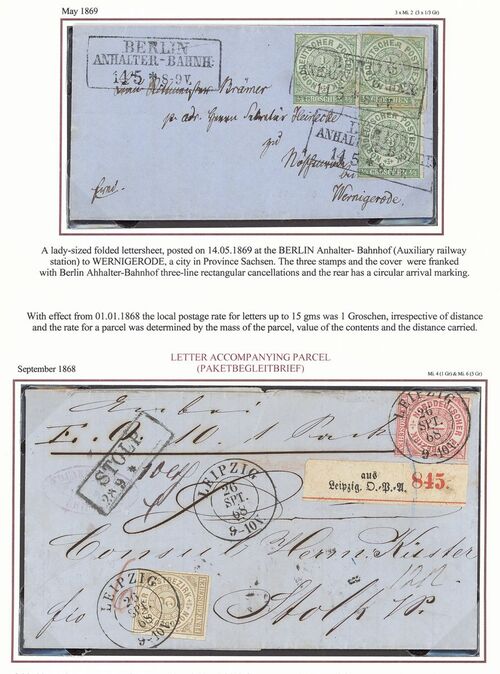 May 1869
3 x Mi. 2 (3 x 1/3 Gr)
BERLIN
ANHALTER-BAHNH:
14 5 * 8-9 V.
NORDDEUTSCHER POSTBEZIRK
1/3 GROSCHEN 1/3
Krämer
p. adr. Herrn Sekretär Heinecke
zu
bei
Wernigerode.
frei.
A lady-sized folded lettersheet, posted on 14.05.1869 at the BERLIN Anhalter- Bahnhof (Auxiliary railway
station) to WERNIGERODE, a city in Province Sachsen. The three stamps and the cover were franked
with Berlin Ahhalter-Bahnhof three-line rectangular cancellations and the rear has a circular arrival marking.
With effect from 01.01.1868 the local postage rate for letters up to 15 gms was 1 Groschen, irrespective of distance
and the rate for a parcel was determined by the mass of the parcel, value of the contents and the distance carried.
LETTER ACCOMPANYING PARCEL
(PAKETBEGLEITBRIEF)
September 1868
Mi. 4 (1 Gr) & Mi. 6 (5 Gr)
LEIPZIG
26
SPT.
68
9-10V.
10. 1 Pack
STOLP
28 9 *
LEIPZIG
26
SPT
68
9-10V.
aus
Leipzig. O.-P.-A.
845.
Consul Herrn Küster
LEIPZIG
26
SPT.
68
9-10V.
Stolp i/P.